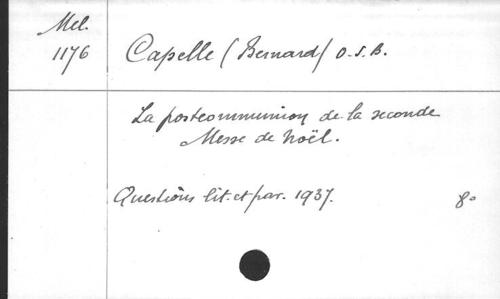 Mel.
1176
Capelle (Bernard) O.S.B.
La postcommunion de la seconde
Messe de Noël.
Questions lit. et par. 1937.
8°